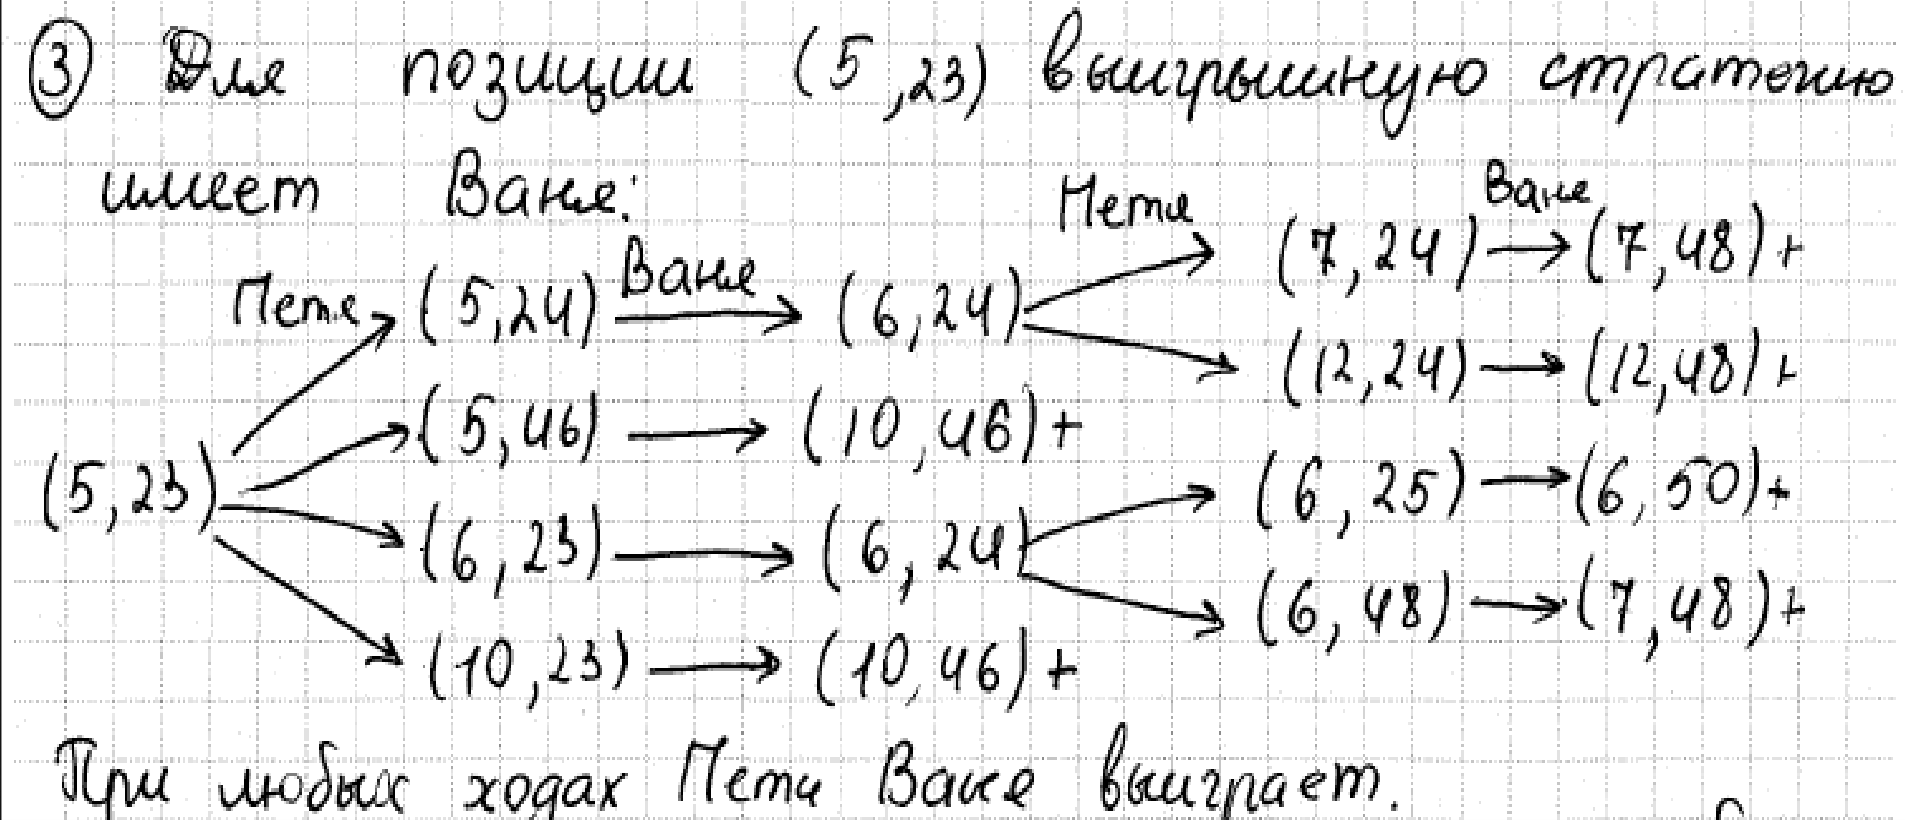 ③ Для позиции (5,23) выигрышную стратегию
имеет Ваня:
Петя Ваня Петя Ваня
(5,24) → (6,24) (7,24) → (7,48)+
(12,24) → (12,48)+
(5,46) → (10,46)+
(5,23) (6,25) → (6,50)+
(6,23) → (6,24)
(6,48) → (7,48)+
(10,23) → (10,46)+
При любых ходах Пети Ваня выиграет.